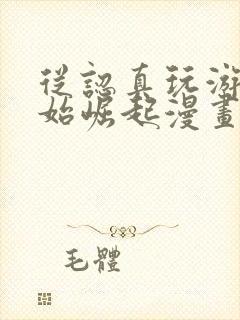 從認真玩游
始崛起漫畫
毛體